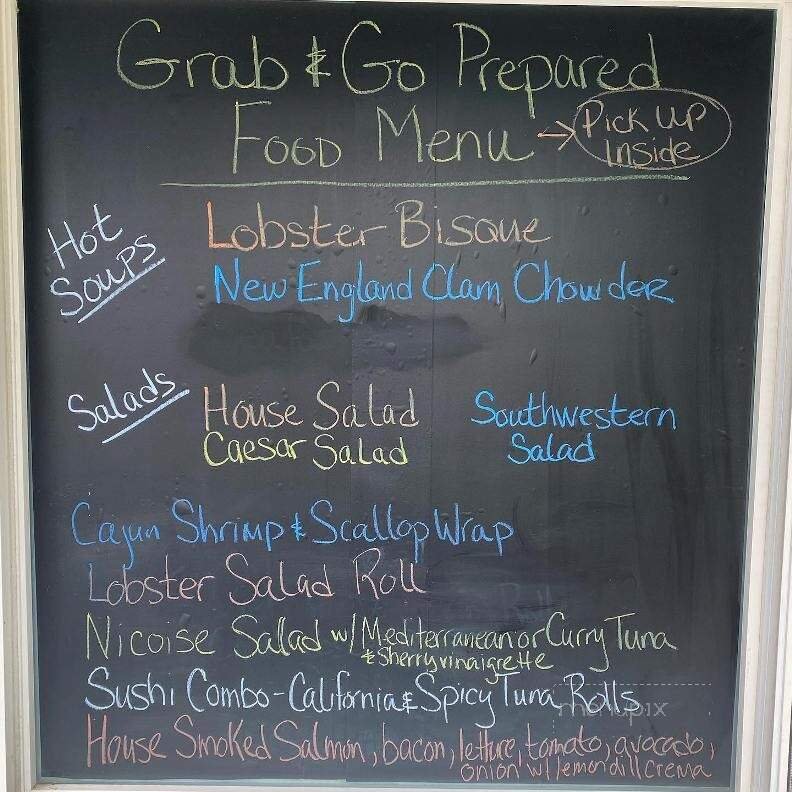 Grab & Go Prepared
Food Menu → Pick Up
Inside
Hot
Soups
Lobster Bisque
New England Clam Chowder
Salads
House Salad
Caesar Salad
Southwestern
Salad
Cajun Shrimp & Scallop Wrap
Lobster Salad Roll
Nicoise Salad w/ Mediterranean or Curry Tuna
& Sherry vinaigrette
Sushi Combo - California & Spicy Tuna Rolls
menupix
House Smoked Salmon, bacon, lettuce, tomato, avocado,
onion w/ lemon dill crema